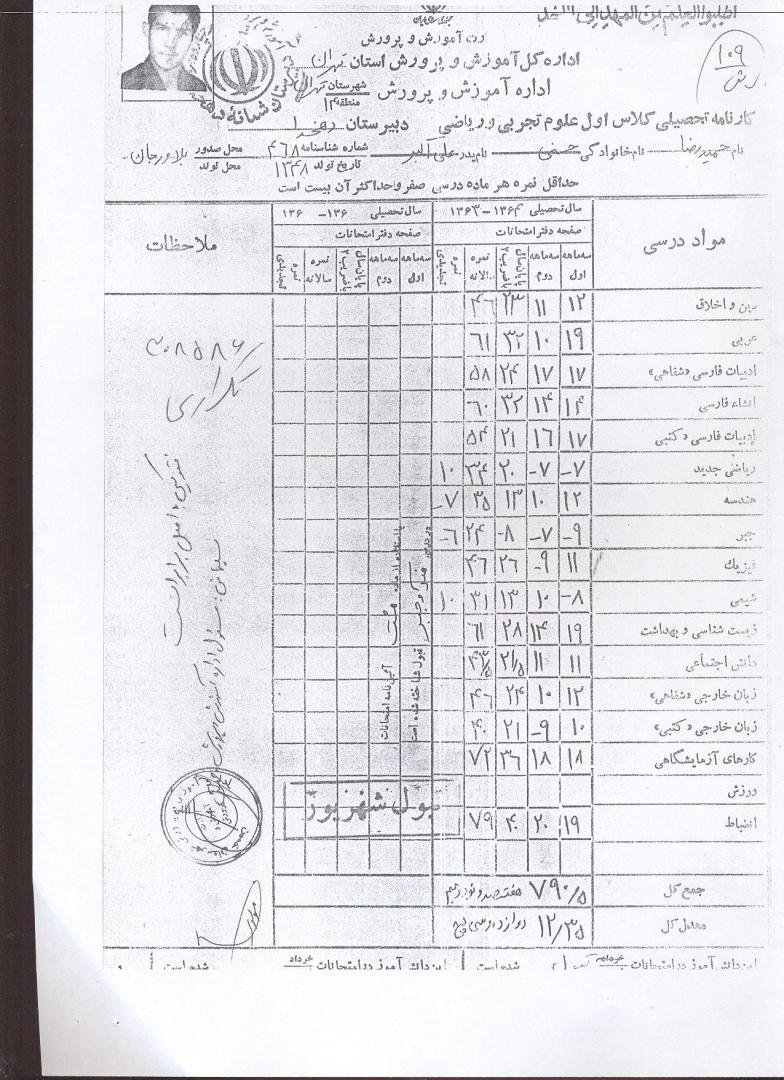 اطلبوا العلم من المهد الی اللحد
۱۰۹
وزارت آموزش و پرورش
اداره کل آموزش و پرورش استان تهران
اداره آموزش و پرورش شهرستان تهران
منطقه ۱۳
کارنامه تحصیلی کلاس اول علوم تجربی و ریاضی دبیرستان دهخدا
نام حمیدرضا نام خانوادگی نام پدر علی اکبر شماره شناسنامه ۴۶۸ محل صدور
تاریخ تولد ۱۳۴۸ محل تولد
حداقل نمره هر ماده درسی صفر و حداکثر آن بیست است
مواد درسی سال تحصیلی ۱۳۶۴ – ۱۳۶۳ سال تحصیلی ۱۳۶ – ۱۳۶ ملاحظات
صفحه دفتر امتحانات صفحه دفتر امتحانات
سه‌ماهه اول سه‌ماهه دوم پایان سال با ضریب ۲ نمره سالانه نمره تجدیدی سه‌ماهه اول سه‌ماهه دوم پایان سال با ضریب ۲ نمره سالانه نمره تجدیدی
دین و اخلاق ۱۲ ۱۱ ۲۳ ۴۶
عربی ۱۹ ۱۰ ۳۲ ۶۱
ادبیات فارسی «شفاهی» ۱۷ ۱۷ ۲۴ ۵۸
انشاء فارسی ۱۴ ۱۴ ۳۲ ۶۰
ادبیات فارسی «کتبی» ۱۷ ۱۶ ۲۱ ۵۴
ریاضی جدید ۷– ۷– ۲۰ ۳۴ ۱۰
هندسه ۱۲ ۱۰ ۱۳ ۳۵ ۷–
جبر ۹– ۷– ۸– ۲۴ ۶–
فیزیک ۱۱ ۹– ۲۶ ۴۶
شیمی ۸– ۱۰ ۱۳ ۳۱ ۱۰
زیست شناسی و بهداشت ۱۹ ۱۴ ۲۸ ۶۱
دانش اجتماعی ۱۱ ۱۱ ۲۱/۵ ۴۳/۵
زبان خارجی «شفاهی» ۱۲ ۱۰ ۲۴ ۴۶
زبان خارجی «کتبی» ۱۰ ۹– ۲۱ ۴۰
کارهای آزمایشگاهی ۱۸ ۱۸ ۳۶ ۷۲
ورزش
انضباط ۱۹ ۲۰ ۴۰ ۷۹
جمع کل ۷۹۰/۵ هفتصد و نود و نیم
معدل کل ۱۲/۳۵
با استفاده از ماده آئین‌نامه امتحانات
در درس قبول شناخته شده است
قبول شهریور
تکراری
فتوکپی با اصل برابر است
این دانش آموز در امتحانات خرداد شده است
این دانش آموز در امتحانات خرداد شده است